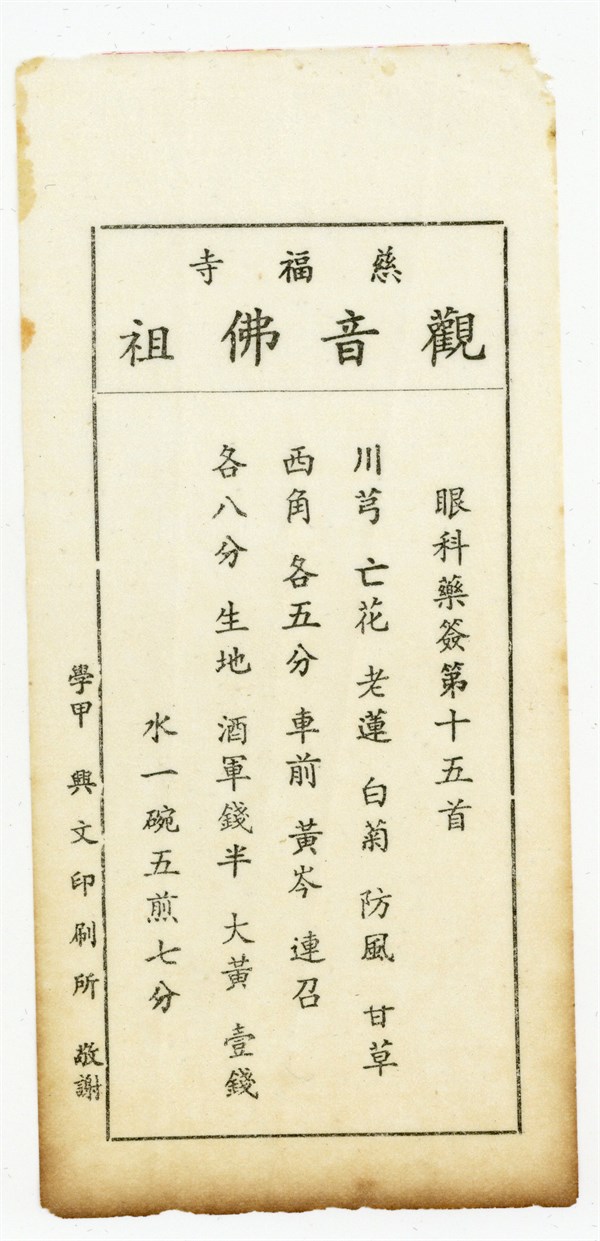 慈福寺
觀音佛祖
眼科藥簽第十五首
川芎 亡花 老蓮 白菊 防風 甘草
西角 各五分 車前 黃岑 連召
各八分 生地 酒軍錢半 大黃 壹錢
水一碗五煎七分
學甲 興文印刷所 敬謝